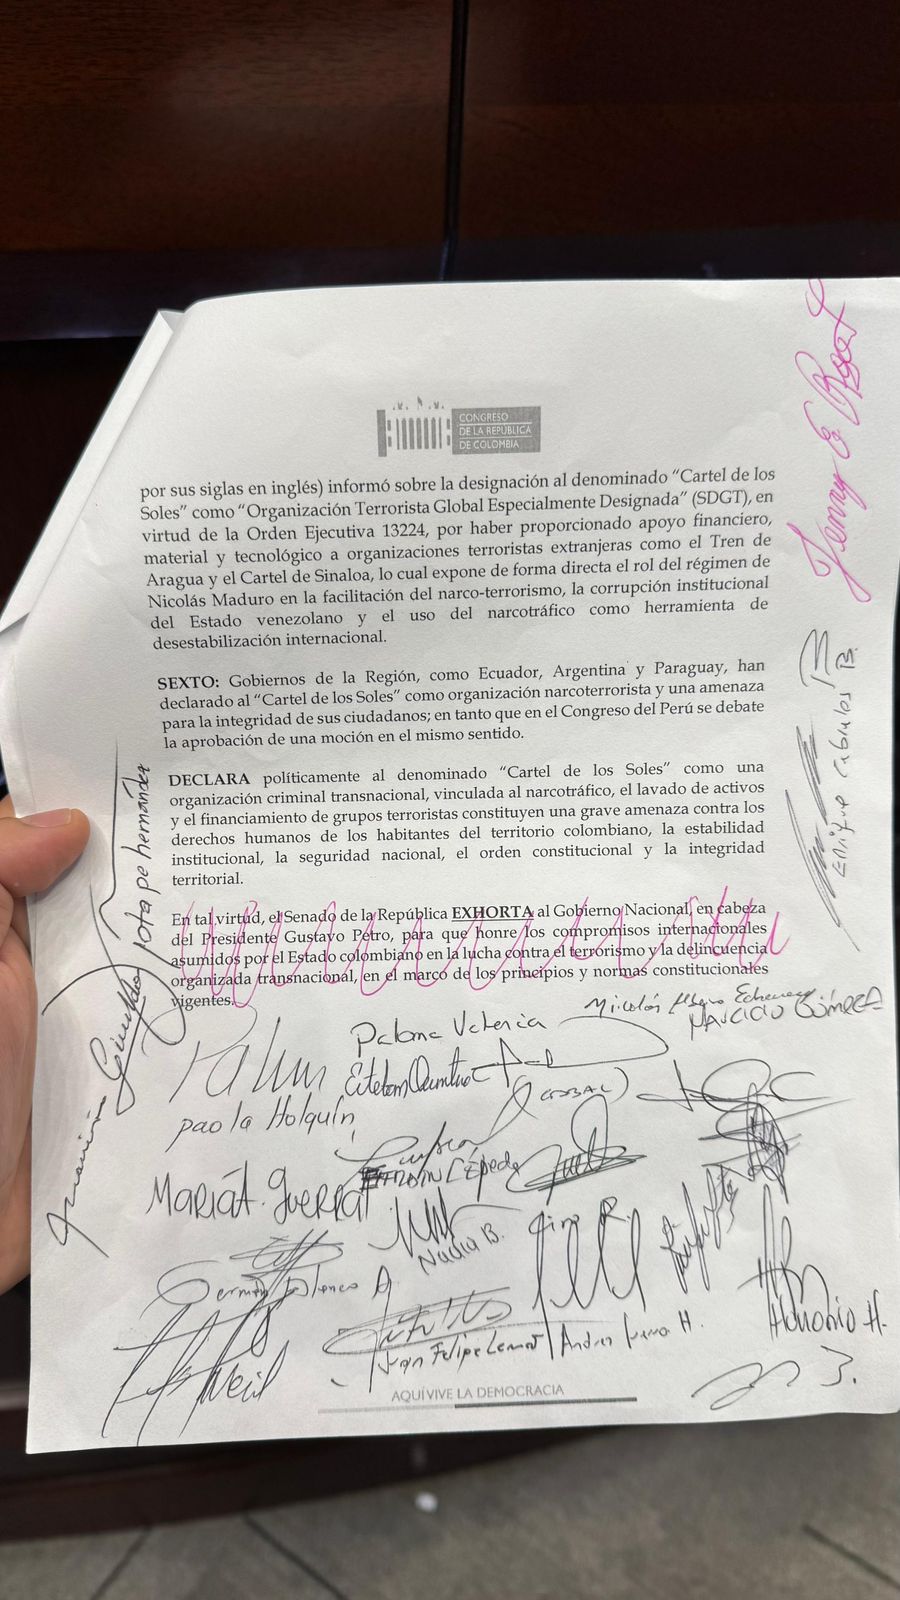 CONGRESO
DE LA REPÚBLICA
DE COLOMBIA
por sus siglas en inglés) informó sobre la designación al denominado “Cartel de los
Soles” como “Organización Terrorista Global Especialmente Designada” (SDGT), en
virtud de la Orden Ejecutiva 13224, por haber proporcionado apoyo financiero,
material y tecnológico a organizaciones terroristas extranjeras como el Tren de
Aragua y el Cartel de Sinaloa, lo cual expone de forma directa el rol del régimen de
Nicolás Maduro en la facilitación del narco-terrorismo, la corrupción institucional
del Estado venezolano y el uso del narcotráfico como herramienta de
desestabilización internacional.
SEXTO: Gobiernos de la Región, como Ecuador, Argentina y Paraguay, han
declarado al “Cartel de los Soles” como organización narcoterrorista y una amenaza
para la integridad de sus ciudadanos; en tanto que en el Congreso del Perú se debate
la aprobación de una moción en el mismo sentido.
DECLARA políticamente al denominado “Cartel de los Soles” como una
organización criminal transnacional, vinculada al narcotráfico, el lavado de activos
y el financiamiento de grupos terroristas constituyen una grave amenaza contra los
derechos humanos de los habitantes del territorio colombiano, la estabilidad
institucional, la seguridad nacional, el orden constitucional y la integridad
territorial.
En tal virtud, el Senado de la República EXHORTA al Gobierno Nacional, en cabeza
del Presidente Gustavo Petro, para que honre los compromisos internacionales
asumidos por el Estado colombiano en la lucha contra el terrorismo y la delincuencia
organizada transnacional, en el marco de los principios y normas constitucionales
vigentes.
Jota pe hernández
Enrique Cabrales B.
Paloma Valencia
Mauricio Gómez A
paola Holguín
María A. Guerra
Nadia B.
Germán Blanco A.
Juan Felipe Lemos
Andres Guerra H.
Honorio H.
AQUÍ VIVE LA DEMOCRACIA